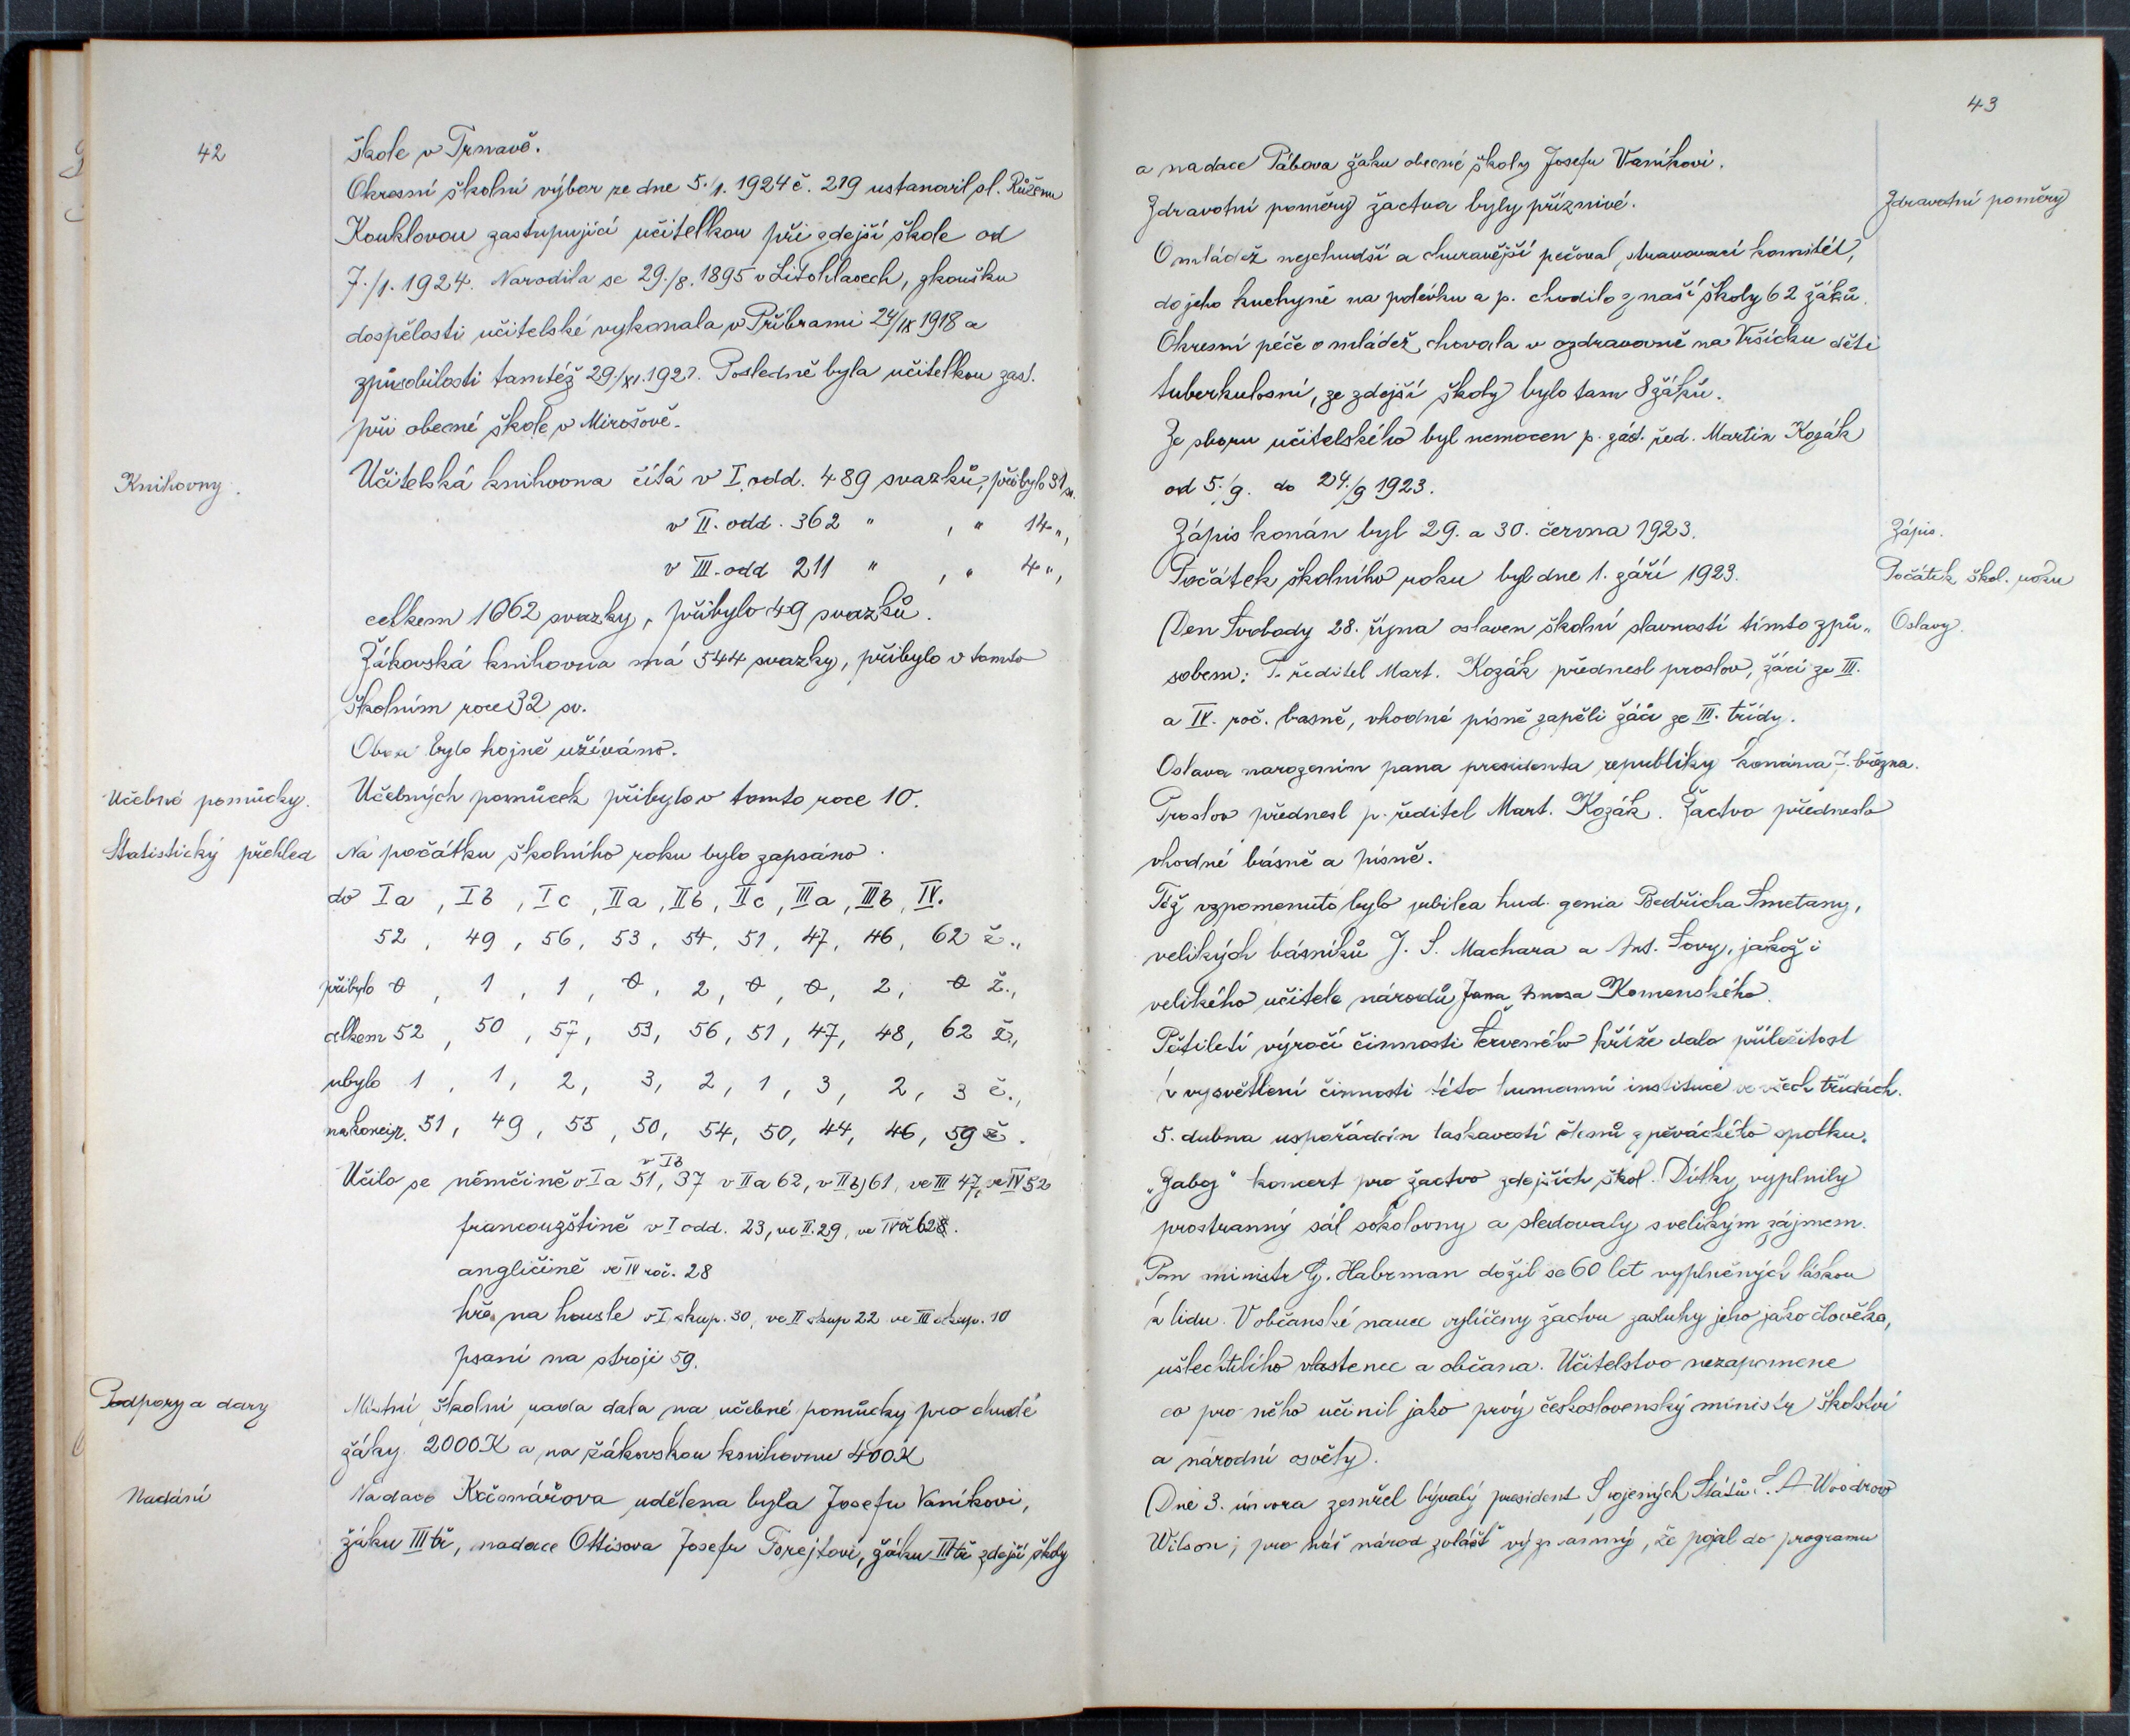 42
škole v Trnavě.
Okresní školní výbor ze dne 5./1. 1924 č. 219 ustanovil sl. Růženu
Kouklovou zastupující učitelkou při zdejší škole od
7./1. 1924. Narodila se 29./8. 1895 v Litohlavech, zkoušku
dospělosti učitelské vykonala v Příbrami 24/IX 1918 a
způsobilosti tamtéž 29./XI. 192?. Posledně byla učitelkou zast.
při obecné škole v Mirošově.
Knihovny.
Učitelská knihovna čítá v I. odd. 489 svazků, přibylo 31 sv.
v II. odd. 362 " , " 14 ",
v III. odd 211 " , " 4 ",
celkem 1062 svazky, přibylo 49 svazků.
Žákovská knihovna má 544 svazky, přibylo v tomto
školním roce 32 sv.
Obou bylo hojně užíváno.
Učebné pomůcky.
Učebných pomůcek přibylo v tomto roce 10.
Statistický přehled
Na počátku školního roku bylo zapsáno
do Ia, Ib, Ic, IIa, IIb, IIc, IIIa, IIIb, IV.
52, 49, 56, 53, 54, 51, 47, 46, 62 ž.,
přibylo 0, 1, 1, 0, 2, 0, 0, 2, 0 ž.,
celkem 52, 50, 57, 53, 56, 51, 47, 48, 62 ž.,
ubylo 1, 1, 2, 3, 2, 1, 3, 2, 3 ž.,
na konci r. 51, 49, 55, 50, 54, 50, 44, 46, 59 ž.
Učilo se němčině v Ia 51, v Ib 37 v IIa 62, v IIb) 61, ve III 47, ve IV 52
francouzštině v I odd. 23, ve II. 29, ve IV
angličině ve IV roč. 28
hře na housle v I. skup. 30, ve II skup 22 ve III skup. 10
psaní na stroji 59.
Podpory a dary
Místní školní rada dala na učebné pomůcky pro chudé
žáky 2000 K a na žákovskou knihovnu 400 K
Nadání
Nadace Kačenářova udělena byla Josefu Vaníkovi,
žáku III tř, nadace Ottisova Josefu Forejtovi, žáku III tř zdejší školy
43
a nadace Pábova žáku obecné školy Josefu Vaníkovi.
Zdravotní poměry žactva byly příznivé.
Zdravotní poměry
O mládež nejchudší a churavější pečoval stravovací komitét,
do jeho kuchyně na polévku a p. chodilo z naší školy 62 žáků.
Okresní péče o mládež chovala v ozdravovně na Vršíčku děti
tuberkulosní, ze zdejší školy bylo tam 8 žáků.
Ze sboru učitelského byl nemocen p. zást. řed. Martin Kozák
od 5./9. do 24./9 1923.
Zápis konán byl 29. a 30. června 1923.
Zápis.
Počátek školního roku byl dne 1. září 1923.
Počátek škol. roku
Den Svobody 28. října oslaven školní slavností tímto způ„
Oslavy.
sobem: P. ředitel Mart. Kozák přednesl proslov, žáci ze III.
a IV. roč. basně, vhodné písně zapěli žáci ze III. třídy.
Oslava narozenin pana presidenta republiky konána 7. března.
Proslov přednesl p. ředitel Mart. Kozák. Žactvo předneslo
vhodné básně a písně.
Též vzpomenuto bylo jubilea hud. genia Bedřicha Smetany,
velikých básníků J. S. Machara a Ant. Sovy, jakož i
velikého učitele národů Jana Amosa Komenského.
Pětiletí výročí činnosti Červeného kříže dalo příležitost
k vysvětlení činnosti této humanní instituce ve všech třídách.
5. dubna uspořádán laskavostí členů zpěváckého spolku
„Záboj" koncert pro žactvo zdejších škol. Dítky vyplnily
prostranný sál sokolovny a sledovaly s velikým zájmem.
Pan ministr G. Habrman dožil se 60 let vyplněných láskou
k lidu. V občanské nauce vylíčeny žactvu zásluhy jeho jako člověka,
ušlechtilého vlastence a občana. Učitelstvo nezapomene
co pro něho učinil jako prvý československý ministr školství
a národní osvěty.
Dne 3. února zemřel bývalý president Spojených Států S. A Woodrow
Wilson; pro náš národ zvlášť významný, že pojal do programu